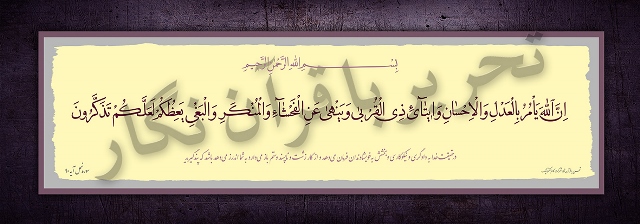 بِسْمِ اللهِ الرَّحْمنِ الرَّحیمِ
اِنَّ اللهَ یَأْمُرُ بِالْعَدْلِ وَ الْاِحْسانِ وَ ایتآئِ ذِی الْقُرْبی وَ یَنْهی عَنِ الْفَحْشآءِ وَ الْمُنْکَرِ وَ الْبَغْیِ یَعِظُکُمْ لَعَلَّکُمْ تَذَکَّرُونَ
تحریر با قرآن نگار
در حقیقت خدا به دادگری و نیکوکاری و بخشش به خویشاوندان فرمان می دهد و از کار زشت و ناپسند و ستم باز می دارد به شما اندرز می دهد باشد که پند گیرید
سوره نحل آیه ۹۰